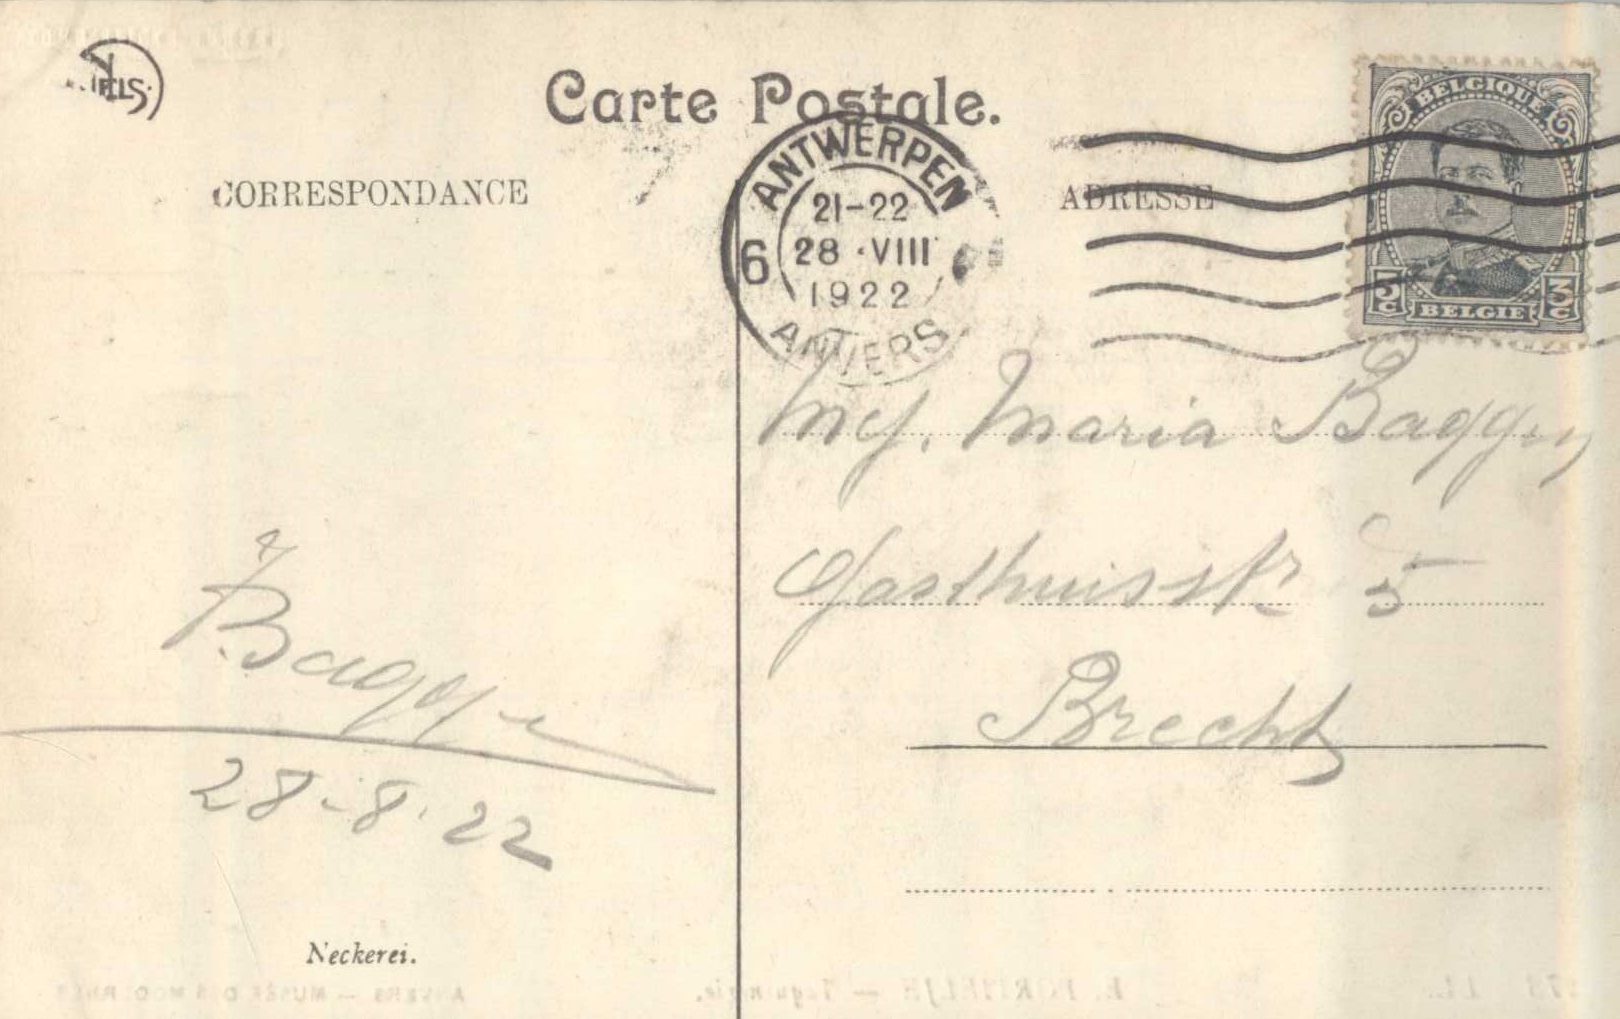 NELS
Carte Postale.
CORRESPONDANCE
ADRESSE
ANTWERPEN
21-22
28 ·VIII
1922
6
ANVERS
BELGIQUE
3c 3c
BELGIE
Mej. Maria Baggen
Gasthuisstr 5
Brecht
Baggen
28-8.22
Neckerei.
ANVERS — MUSÉE DES MODERNES